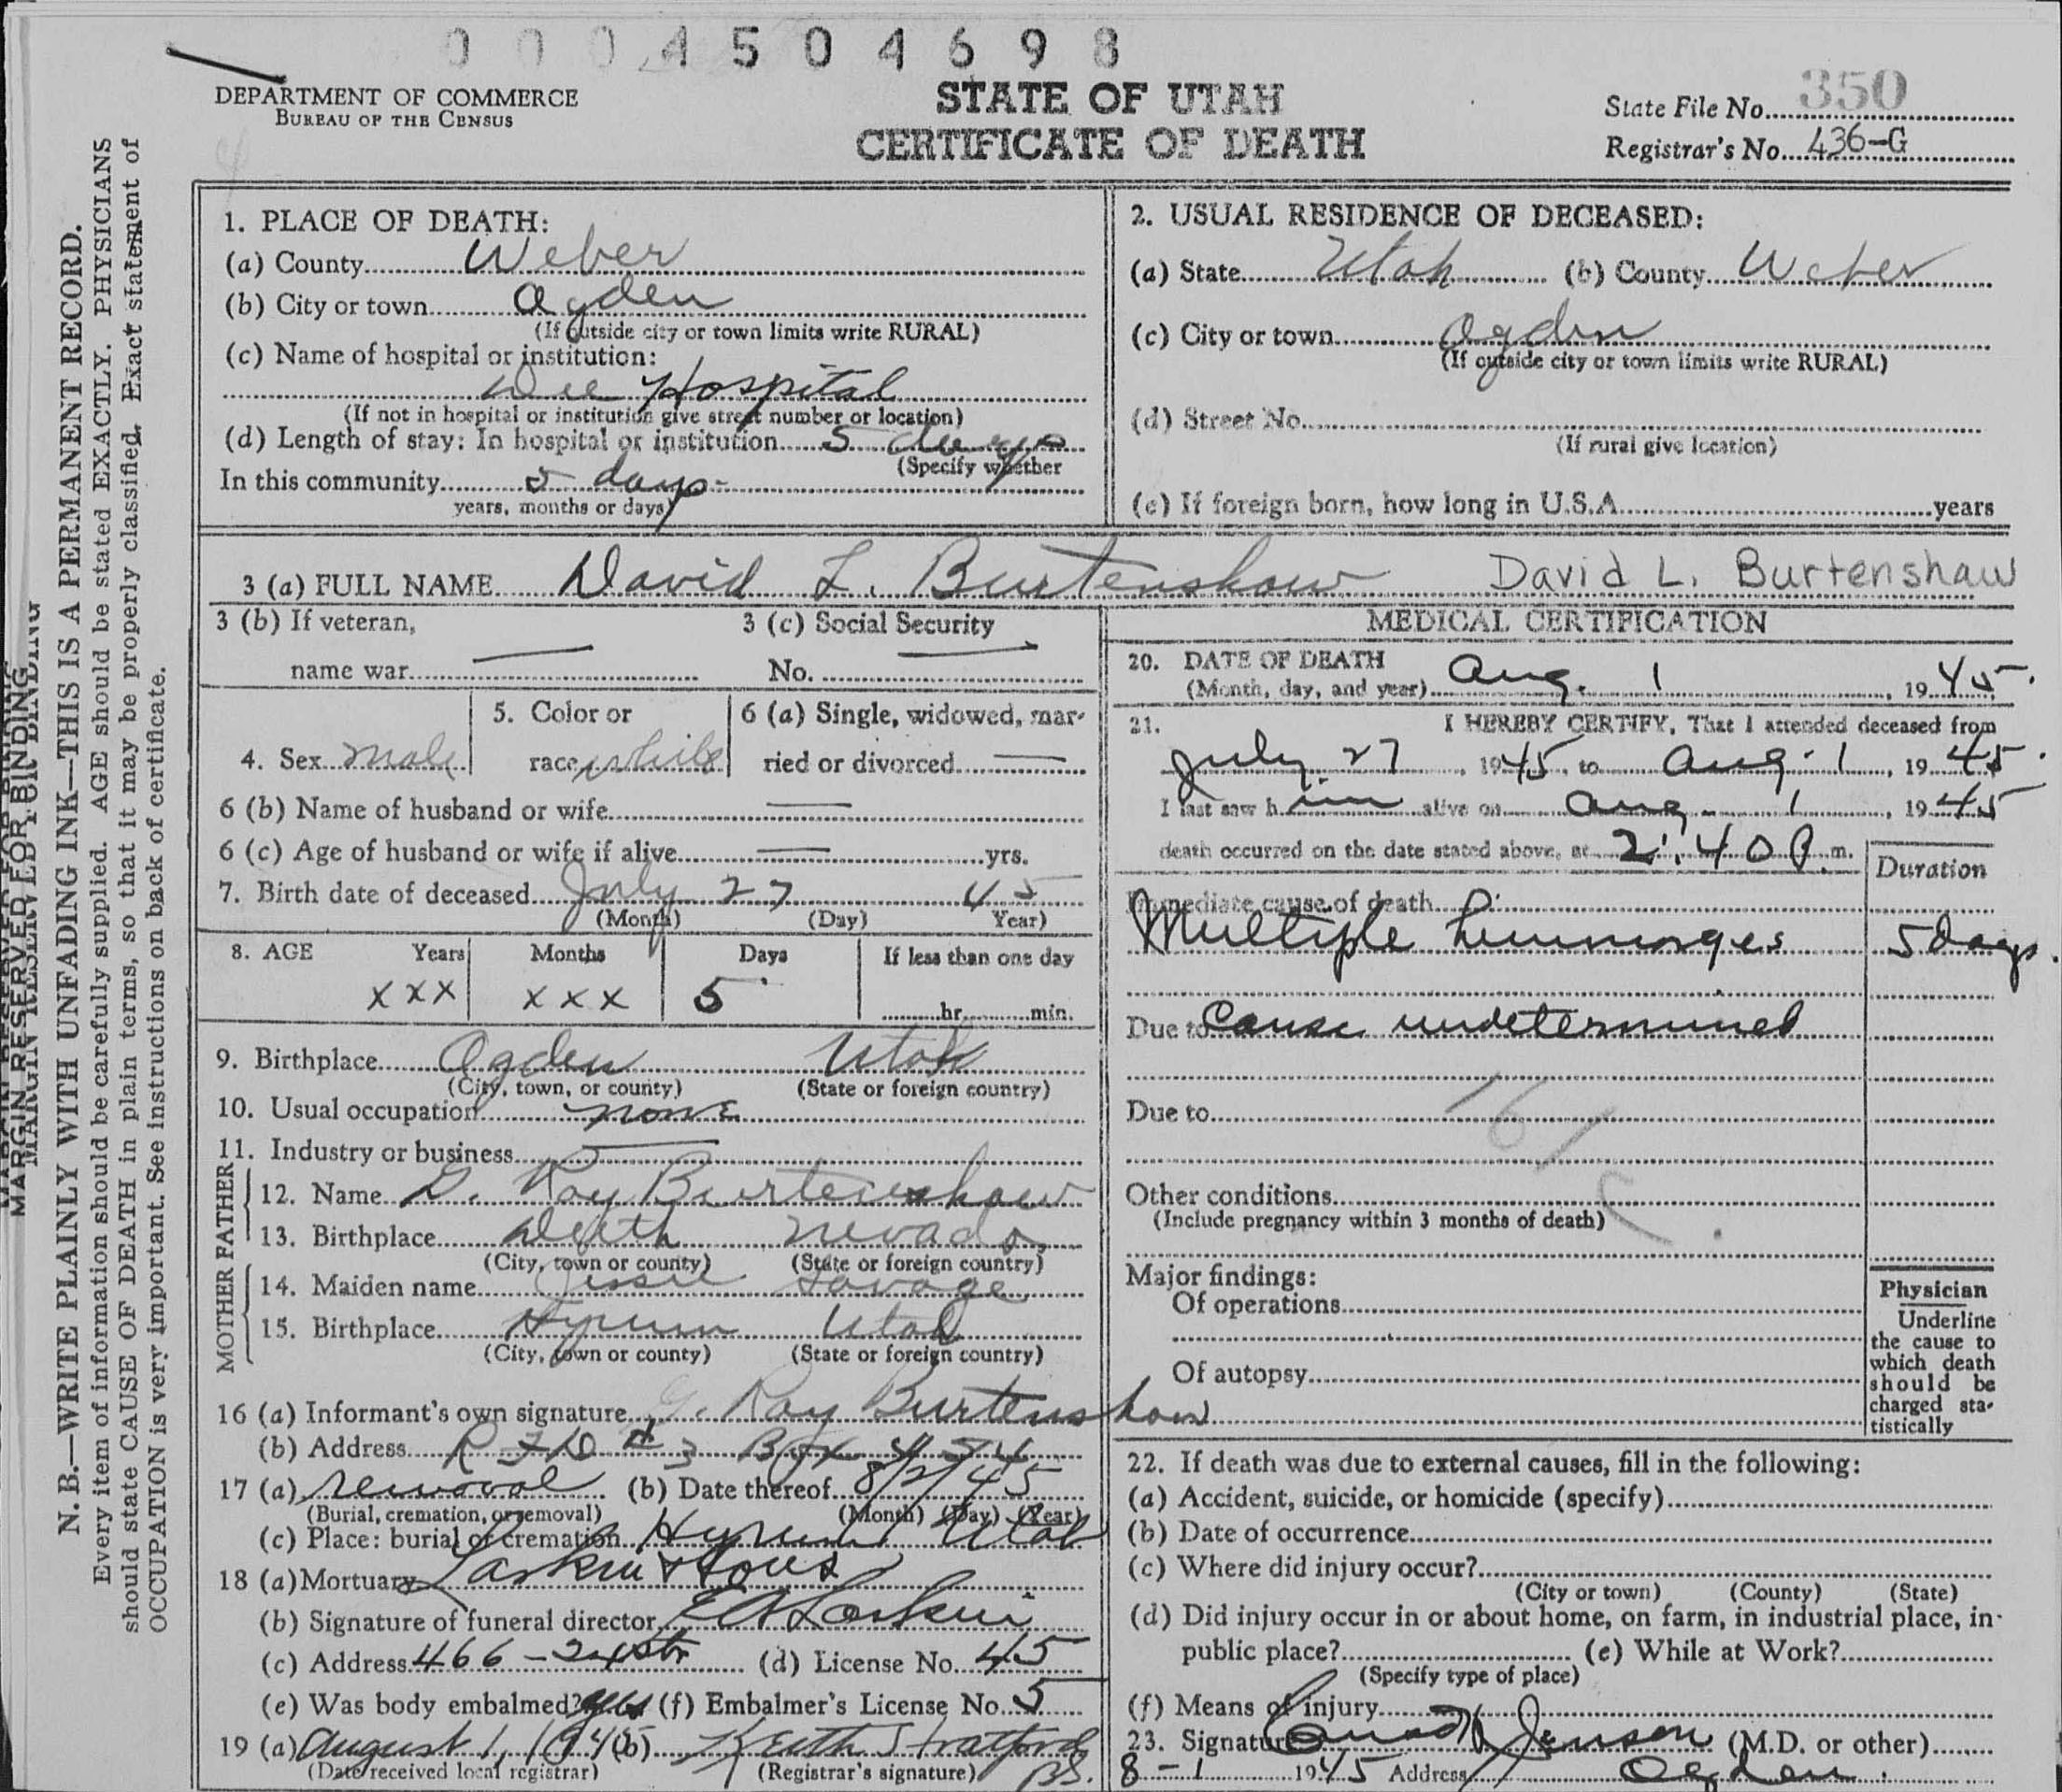 0 0 0 4 5 0 4 6 9 8
DEPARTMENT OF COMMERCE
BUREAU OF THE CENSUS
STATE OF UTAH
CERTIFICATE OF DEATH
State File No. 350
Registrar's No. 436-G
N. B.—WRITE PLAINLY WITH UNFADING INK—THIS IS A PERMANENT RECORD.
Every item of information should be carefully supplied. AGE should be stated EXACTLY. PHYSICIANS
should state CAUSE OF DEATH in plain terms, so that it may be properly classified. Exact statement of
OCCUPATION is very important. See instructions on back of certificate.
MARGIN RESERVED FOR BINDING
1. PLACE OF DEATH:
(a) County Weber
(b) City or town Ogden
(If outside city or town limits write RURAL)
(c) Name of hospital or institution:
Dee Hospital
(If not in hospital or institution give street number or location)
(d) Length of stay: In hospital or institution 5 days
(Specify whether
In this community 5 days
years, months or days)
2. USUAL RESIDENCE OF DECEASED:
(a) State Utah (b) County Weber
(c) City or town Ogden
(If outside city or town limits write RURAL)
(d) Street No.
(If rural give location)
(e) If foreign born, how long in U.S.A. years
3 (a) FULL NAME David L. Burtenshaw David L. Burtenshaw
3 (b) If veteran,
name war —
3 (c) Social Security
No. —
4. Sex male
5. Color or
race white
6 (a) Single, widowed, mar-
ried or divorced —
6 (b) Name of husband or wife —
6 (c) Age of husband or wife if alive — yrs.
7. Birth date of deceased July 27 45
(Month) (Day) Year)
8. AGE Years Months Days If less than one day
xxx xxx 5 hr. min.
9. Birthplace Ogden Utah
(City, town, or county) (State or foreign country)
10. Usual occupation none
11. Industry or business —
FATHER
12. Name G. Roy Burtenshaw
13. Birthplace Deeth Nevada
(City, town or county) (State or foreign country)
MOTHER
14. Maiden name Jessie Savage
15. Birthplace Hyrum Utah
(City, town or county) (State or foreign country)
16 (a) Informant's own signature G. Roy Burtenshaw
(b) Address R F D # 3 Box 454
17 (a) removal (b) Date thereof 8/2/45
(Burial, cremation, or removal) (Month) (Day) (Year)
(c) Place: burial or cremation Hyrum Utah
18 (a) Mortuary Larkin & Sons
(b) Signature of funeral director Larkin
(c) Address 466 - 24 str (d) License No. 45
(e) Was body embalmed? yes (f) Embalmer's License No. 5
19 (a) August 1, 1945 (b) Keith Stratford
(Date received local registrar) (Registrar's signature) BS.
MEDICAL CERTIFICATION
20. DATE OF DEATH
(Month, day, and year) Aug. 1, 1945.
21. I HEREBY CERTIFY, That I attended deceased from
July 27, 1945, to Aug. 1, 1945.
I last saw him alive on Aug 1, 1945
death occurred on the date stated above, at 2:40 P.m.
Duration
Immediate cause of death
Multiple hemmorages 5 days.
Due to Cause undetermined
Due to
161 c
Other conditions
(Include pregnancy within 3 months of death)
Major findings:
Of operations
Of autopsy
Physician
Underline
the cause to
which death
should be
charged sta-
tistically
22. If death was due to external causes, fill in the following:
(a) Accident, suicide, or homicide (specify)
(b) Date of occurrence
(c) Where did injury occur?
(City or town) (County) (State)
(d) Did injury occur in or about home, on farm, in industrial place, in-
public place? (e) While at Work?
(Specify type of place)
(f) Means of injury
23. Signature Conrad H Jenson (M.D. or other)
8-1 1945 Address Ogden.